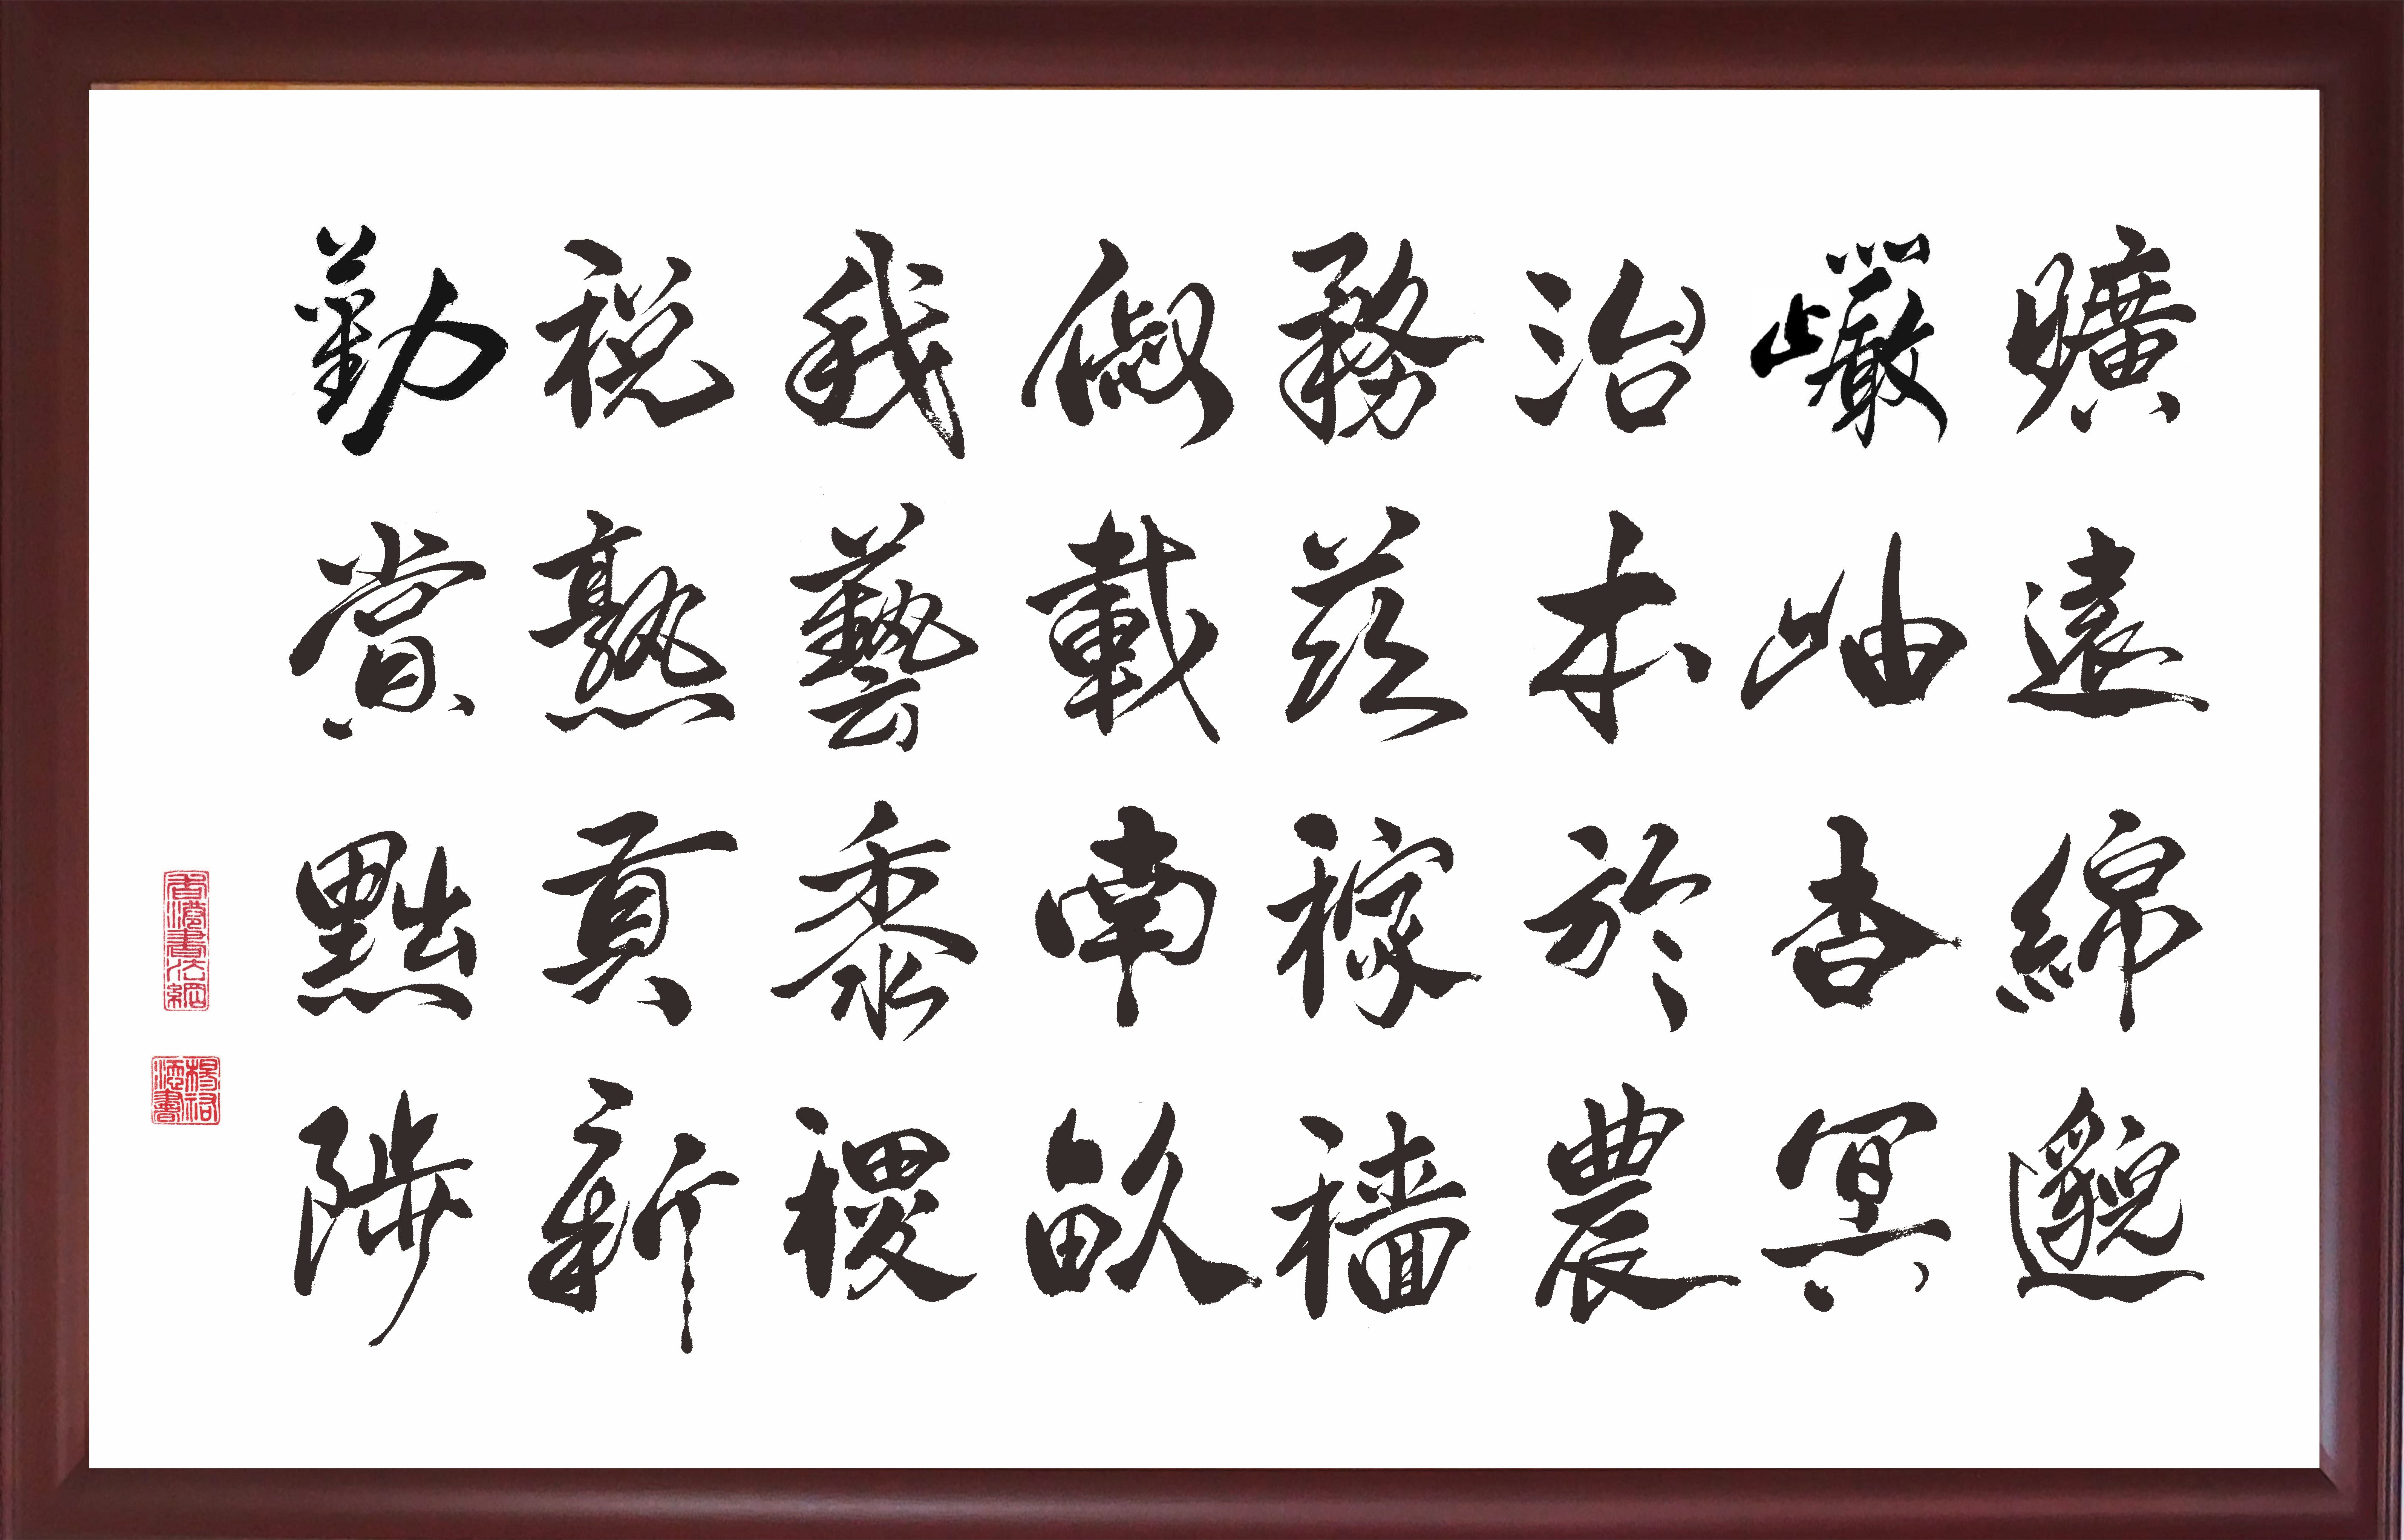 曠遠綿邈
巖岫杳冥
治本於農
務茲稼穡
俶載南畝
我藝黍稷
稅熟貢新
勸賞黜陟